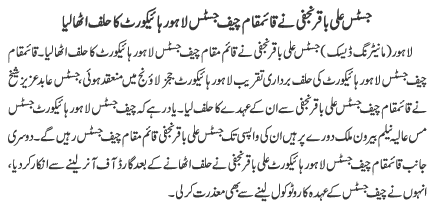 جسٹس علی باقر نجفی نے قائمقام چیف جسٹس لاہور ہائیکورٹ کا حلف اٹھا لیا
لاہور (مانیٹرنگ ڈیسک) جسٹس علی باقر نجفی نے قائم مقام چیف جسٹس لاہور ہائیکورٹ کا حلف اٹھا لیا۔ قائمقام
چیف جسٹس لاہور ہائیکورٹ کی حلف برداری تقریب لاہور ہائیکورٹ ججز لاؤنج میں منعقد ہوئی، جسٹس عابد عزیز شیخ
نے قائمقام چیف جسٹس علی باقر نجفی سے ان کے عہدے کا حلف لیا۔ یاد رہے کہ چیف جسٹس لاہور ہائیکورٹ جسٹس
مس عالیہ نیلم بیرون ملک دورے پر ہیں ان کی واپسی تک جسٹس علی باقر نجفی قائم مقام چیف جسٹس رہیں گے۔ دوسری
جانب قائمقام چیف جسٹس لاہور ہائیکورٹ علی باقر نجفی نے حلف اٹھانے کے بعد گارڈ آف آنر لینے سے انکار کر دیا،
انہوں نے چیف جسٹس کے عہدہ کا پروٹوکول لینے سے بھی معذرت کر لی۔